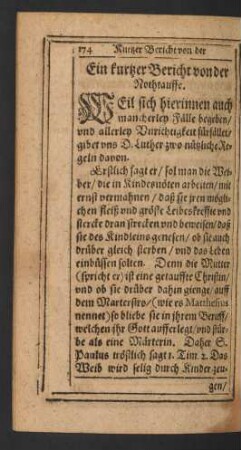 174 Kurtzer Bericht von der
Ein kurtzer Bericht von der
Nothtauffe.
WEil sich hierinnen auch
mancherley Fälle begeben/
vnd allerley Vnrichtigkeit fürfället/
gibet vns D. Luther zwo nützliche Re-
geln davon.
Erstlich sagt er/ sol man die Wei-
ber/ die in Kindesnöten arbeiten/ mit
ernst vermahnen/ daß sie jren mögli-
chen fleiß vnd gröste Leibeskreffte vnd
stercke dran strecken vnd beweisen/ daß
sie des Kindleins genesen/ ob sie auch
drüber gleich sterben/ vnd das Leben
einbüssen solten. Denn die Mutter
(spricht er) ist eine getauffte Christin/
vnd ob sie drüber dahin gienge/ auff
dem Martersitz/ (wie es Matthesius
nennet) so bliebe sie in jhrem Beruff/
welchen jhr Gott aufferlegt/ vnd stür-
be als eine Märterin. Daher S.
Paulus tröstlich sagt 1. Tim 2. Das
Weib wird selig durch Kinder zeu-
gen/